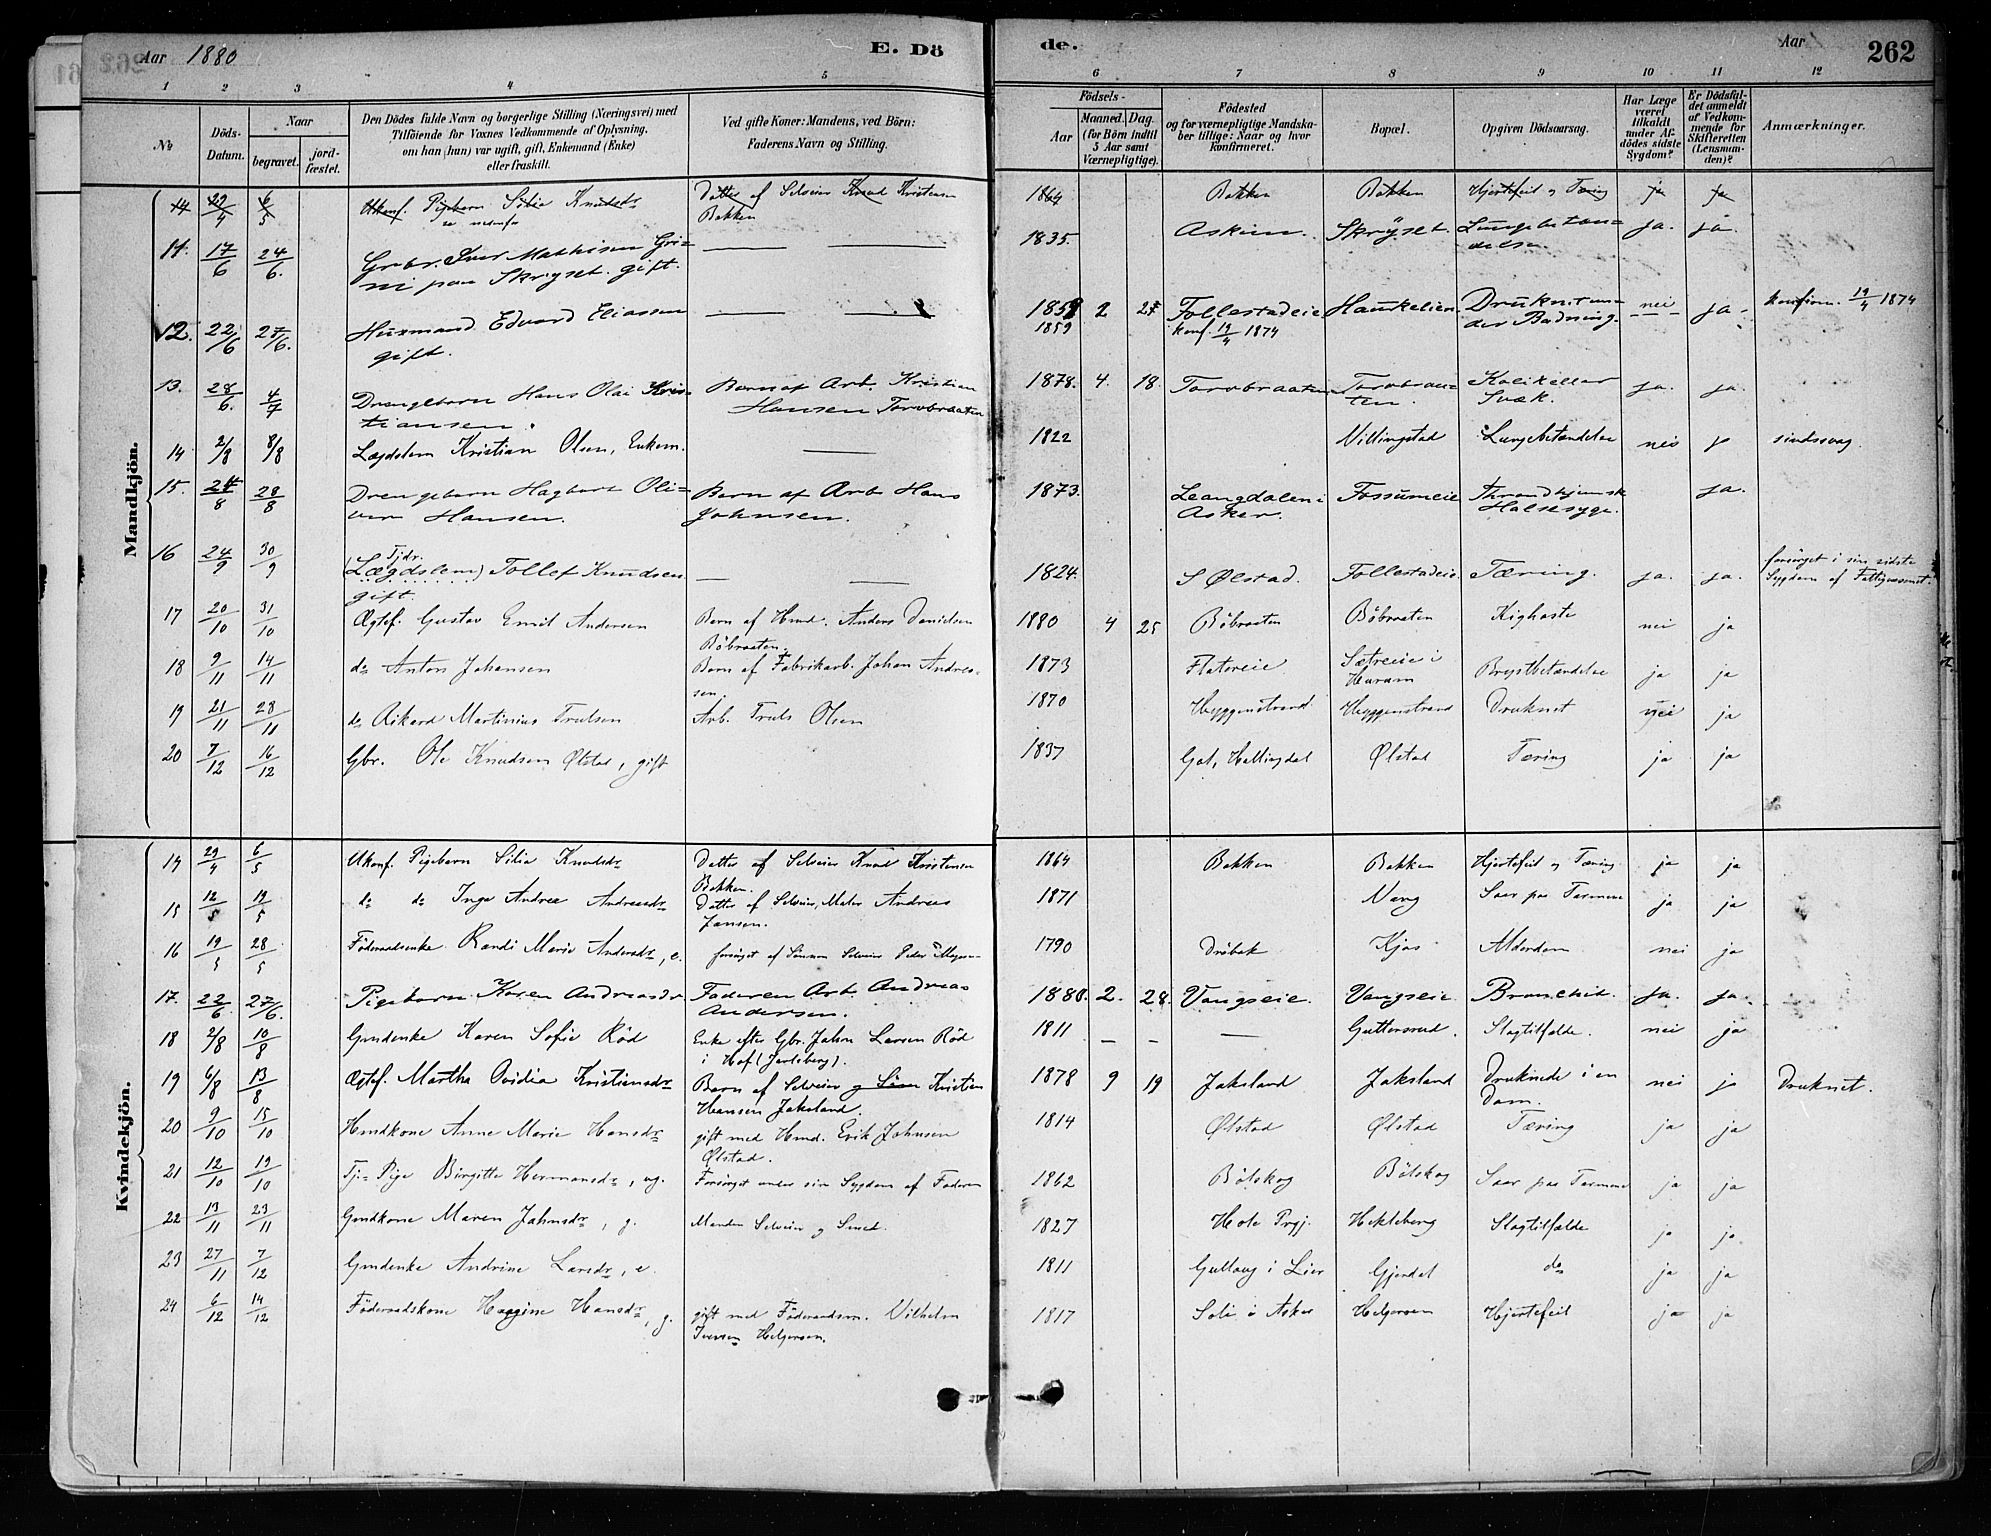 Aar 1880 E. Döde. Aar 262
1 2 3 4 5 6 7 8 9 10 11 12
No Döds-Datum. Naar begravet. jordfæstet. Den Dödes fulde Navn og borgerlige Stilling (Næringsvei) med Tilföiende for Voxnes Vedkommende af Oplysning, om han (hun) var ugift, gift, Enkemand (Enke) eller fraskilt. Ved gifte Koner: Mandens, ved Börn: Faderens Navn og Stilling. Födsels- Aar Maaned. Dag. (for Börn indtil 5 Aar samt Værnepligtige). Födested og for værnepligtige Mandskaber tillige: Naar og hvor konfirmeret. Bopæl. Opgiven Dödsaarsag. Har Læge været tilkaldt under Afdödes sidste Sygdom? Er Dödsfaldet anmeldt af Vedkommende for Skifteretten (Lensmanden)? Anmærkninger.
Mandkjön.
14 29/4 6/5 Ukonf. Pigebarn Silia Knudsdr Datter af Selveier Knud Kristensen Bakken 1864 Bakken Bakken Hjertefeil og Tæring ja ja
11. 17/6 24/6. Grbr. Iver Mathisen Grini paa Skryset. gift. 1835. Asken. Skryset. Lungebetændelse. ja. ja.
12. 22/6 27/6. Husmand Edvard Eliassen gift. 1859 2 27 Follestadeie Haukelien Druknet under Badning. nei ja. konfirm. 19/4 1874
1859 konf. 19/4 1874
13. 28/6. 4/7 Drengebarn Hans Olai Kristiansen. Barn af Arb. Kristian Hansen Torvbraaten 1878. 4. 18. Torvbraaten Torvbraaten. Kolik eller Svæk. ja. ja.
14 2/8 8/8 Lægdslem Kristian Olsen, Enkem. 1822 Villingstad Lungebetændelse nei sindssvag.
15. 24/8 28/8 Drengebarn Hagbart Oliver Hansen. Barn af Arb Hans Johnsen. 1873. Leangdalen i Asker. Fossumeie Throndhjemsk Halssyge. ja.
16 24/9 30/9 Tjdr. (Lægdslem) Tollef Knudsen gift. 1824. S Ølstad. Follestadeie. Tæring. ja. ja. forsørget i sin sidste Sygdom af Fattigvæsenet.
17 20/10 31/10 Ægtef. Gustav Emil Andersen Barn af Hmd. Anders Danielsen Böbraaten. 1880 4 25 Böbraaten Böbraaten Kighoste nei ja
18 9/11 14/11 do Anton Johansen Barn af Fabrikarb. Johan Andreassen. 1873 Flatereie Sætreeie i Hurum Brystbetændelse ja ja
19 21/11 28/11 do Rikard Martinius Trulsen Arb. Truls Olsen 1870 Hyggenstrand Hyggenstrand Druknet nei ja
20 7/12 16/12 Gbr. Ole Knudsen Ølstad, gift 1837 Gol, Hallingdal Ølstad Tæring ja ja
Kvindekjön.
14 29/4 6/5 Ukonf. Pigebarn Silia Knudsdr Datter af Selveier Knud Kristensen Bakken. 1864 Bakken Bakken Hjertefeil og Tæring ja ja
15 12/5 19/5 do do Inga Andrea Andreasdr Datter af Selveier, Maler Andreas Jansen. 1871 Narg Saar paa Tarmene ja ja
16 19/5 28/5 Föderaadsenke Randi Marie Andersdr, e. forsörget af Sönnen Selveier Peder 1790 Dröbak Kjos Alderdom nei ja
17. 22/6 27/6. Pigebarn Karen Andreasdr Faderen Arb. Andreas Andersen. 1880. 2. 28. Vangseie. Vangseie. Bronchit. ja. ja.
18 2/8 10/8 Gmdenke Karen Sofie Röd Enke efter Gbr. Johan Larsen Röd i Hof (Jarlsberg). 1811 – – — Guttersrud. Slagtilfælde. nei ja
19 6/8 13/8 Ægtef. Martha Ovidia Kristiansdr Barn af Selveier og Kristian Hansen Jaksland. 1878 9 19 Jaksland Jaksland Druknede i en Dam. nei ja Druknet.
20 9/10 15/10 Hmdkone Anne Marie Hansdr gift med Hmd. Erik Johnsen Ølstad. 1814 Ølstad Ølstad Tæring ja ja
21 12/10 19/10 Tj. Pige Birgitte Hermansdr, ug. Forsörget under sin Sygdom af Faderen 1862 Bölskog Bölskog Saar paa Tarmene ja ja
22 13/11 23/11 Gmdkone Maren Johnsdr, g. Manden Selveier og Smed. 1827 Hole Prgj. Hekleberg Slagtilfælde ja ja
23 27/11 7/12 Gmdenke Andrine Larsdr, e. 1811 Gullaug i Lier Gjerdal do ja ja
24 6/12 14/12 Föderaadskone Haagine Hansdr, g. gift med Föderaadsm. Vilhelm Iversen Helgersen. 1817 Soli i Asker Helgersen Hjertefeil ja ja